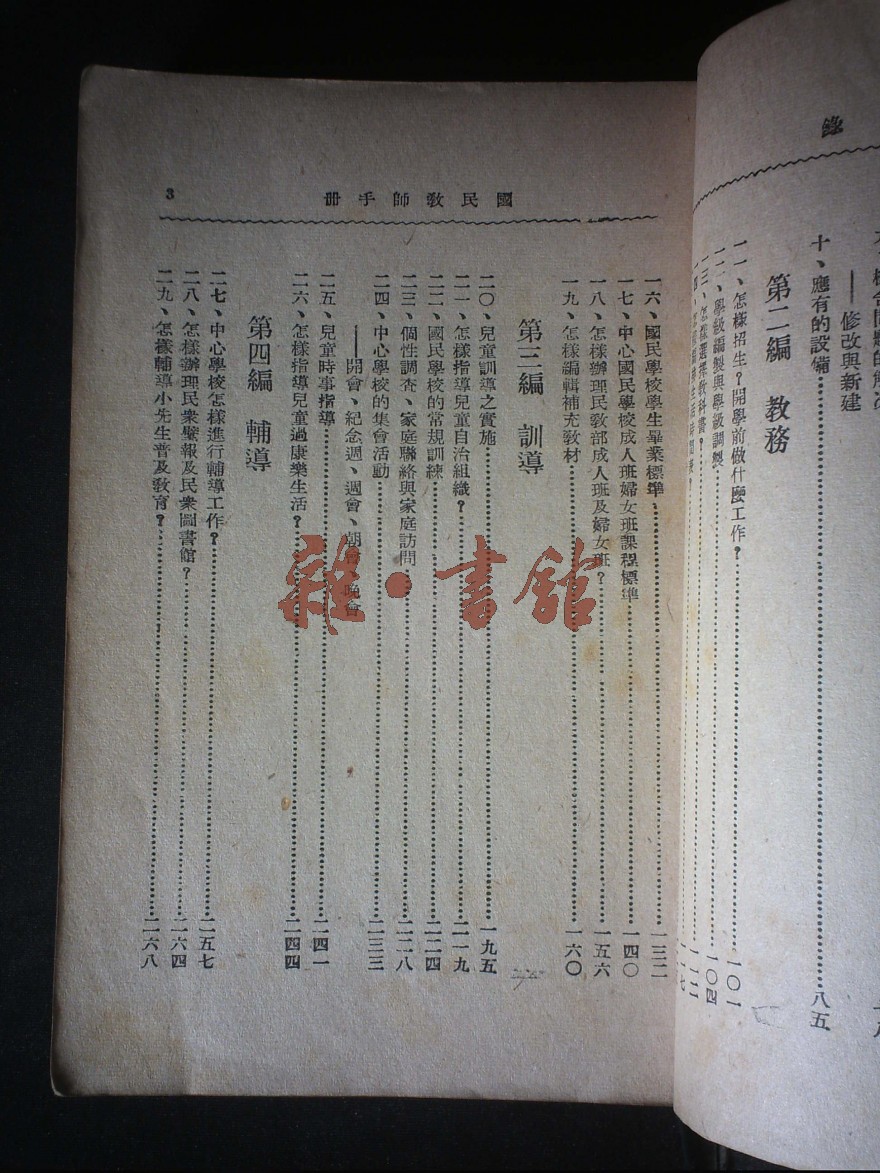 錄
——修改與新建
十、應有的設備…………八五
第二編 教務
一一、怎樣招生？開學前做什麼工作？…………一〇一
一二、學級編製與學級調製…………一〇四
一三、怎樣選擇教科書？…………一一二
國民教師手册
3
一六、國民學校學生畢業標準…………一三二
一七、中心國民學校成人班婦女班課程標準…………一四〇
一八、怎樣辦理民教部成人班及婦女班？…………一五六
一九、怎樣編輯補充教材…………一六〇
第三編 訓導
二〇、兒童訓導之實施…………一九五
二一、怎樣指導兒童自治組織？…………二一九
二二、國民學校的常規訓練…………二二四
二三、個性調查、家庭聯絡與家庭訪問…………二二八
二四、中心學校的集會活動…………二三三
——開會、紀念週、週會、朝會、晚會
二五、兒童時事指導…………二四一
二六、怎樣指導兒童過康樂生活？…………二四四
第四編 輔導
二七、中心學校怎樣進行輔導工作？…………二五七
二八、怎樣辦理民衆壁報及民衆圖書館？…………二六四
二九、怎樣輔導小先生普及教育？…………二六八
雜·書館